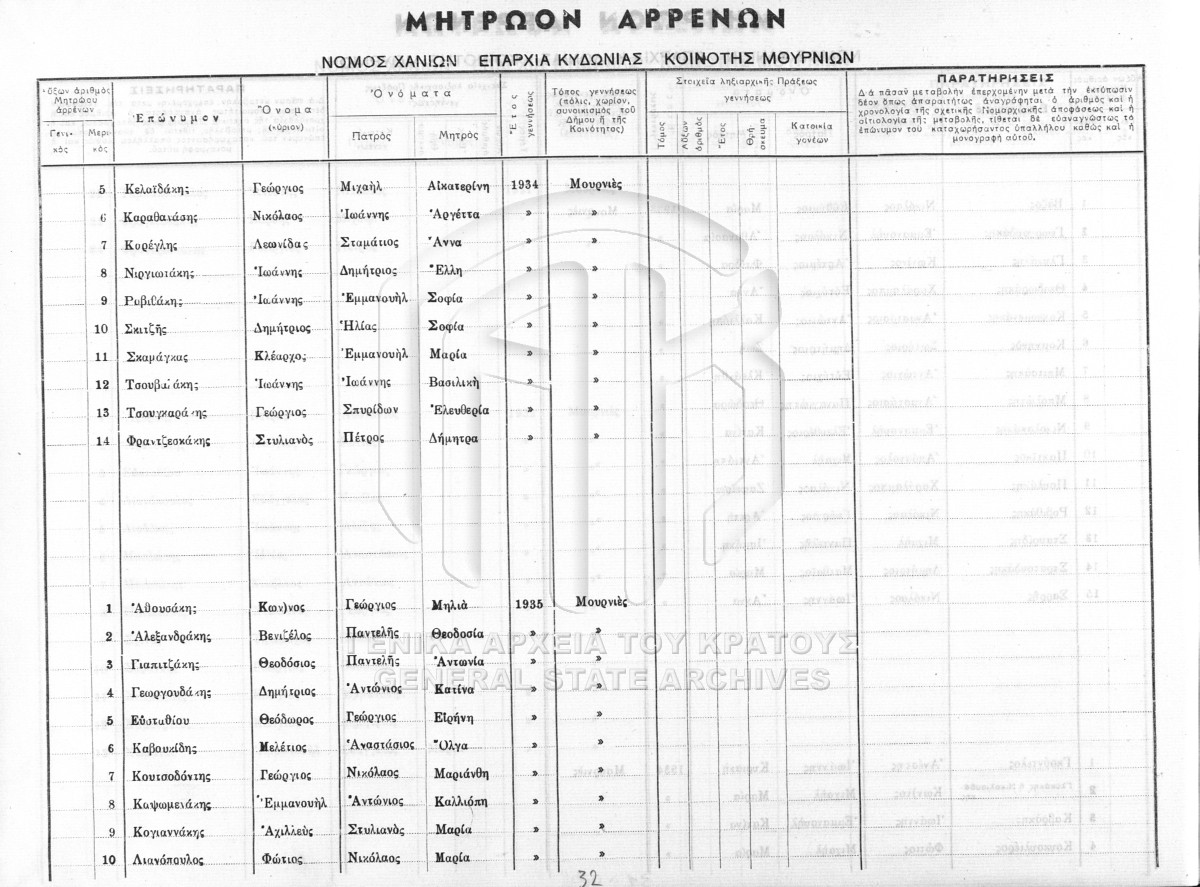 ΜΗΤΡΩΟΝ ΑΡΡΕΝΩΝ
ΝΟΜΟΣ ΧΑΝΙΩΝ ΕΠΑΡΧΙΑ ΚΥΔΩΝΙΑΣ ΚΟΙΝΟΤΗΣ ΜΟΥΡΝΙΩΝ
Αὔξων ἀριθμὸς Μητρώου ἀρρένων
Γενικὸς Μερικὸς
Ἐπώνυμον
Ὄνομα (κύριον)
Ὀνόματα
Πατρὸς Μητρὸς
Ἔτος γεννήσεως
Τόπος γεννήσεως (πόλις, χωρίον, συνοικισμὸς τοῦ Δήμου ἢ τῆς Κοινότητος)
Στοιχεῖα ληξιαρχικῆς Πράξεως γεννήσεως
Τόμος Αὔξων ἀριθμὸς Ἔτος Θρήσκευμα Κατοικία γονέων
ΠΑΡΑΤΗΡΗΣΕΙΣ
Διὰ πᾶσαν μεταβολὴν ἐπερχομένην μετὰ τὴν ἐκτύπωσιν
δέον ὅπως ἀπαραιτήτως ἀναγράφηται ὁ ἀριθμὸς καὶ ἡ
χρονολογία τῆς σχετικῆς Νομαρχιακῆς ἀποφάσεως καὶ ἡ
αἰτιολογία τῆς μεταβολῆς, τίθεται δὲ εὐαναγνώστως τὸ
ἐπώνυμον τοῦ καταχωρήσαντος ὑπαλλήλου καθὼς καὶ ἡ
μονογραφὴ αὐτοῦ.
5 Κελαϊδάκης Γεώργιος Μιχαὴλ Αἰκατερίνη 1934 Μουρνιὲς
6 Καραθανάσης Νικόλαος Ἰωάννης Ἀργέττα » »
7 Κυρέγλης Λεωνίδας Σταμάτιος Ἄννα » »
8 Νιργιωτάκης Ἰωάννης Δημήτριος Ἕλλη » »
9 Ρυβιθάκης Ἰωάννης Ἐμμανουὴλ Σοφία » »
10 Σκιτζῆς Δημήτριος Ἠλίας Σοφία » »
11 Σκαμάγκας Κλέαρχος Ἐμμανουὴλ Μαρία » »
12 Τσουβαλάκης Ἰωάννης Ἰωάννης Βασιλικὴ » »
13 Τσουγκαράκης Γεώργιος Σπυρίδων Ἐλευθερία » »
14 Φραντζεσκάκης Στυλιανὸς Πέτρος Δήμητρα » »
1 Ἀθουσάκης Κων)νος Γεώργιος Μηλιὰ 1935 Μουρνιὲς
2 Ἀλεξανδράκης Βενιζέλος Παντελῆς Θεοδοσία » »
3 Γιαπιτζάκης Θεοδόσιος Παντελῆς Ἀντωνία » »
ΓΕΝΙΚΑ ΑΡΧΕΙΑ ΤΟΥ ΚΡΑΤΟΥΣ
GENERAL STATE ARCHIVES
4 Γεωργουδάκης Δημήτριος Ἀντώνιος Κατίνα » »
5 Εὐσταθίου Θεόδωρος Γεώργιος Εἰρήνη » »
6 Καβουκίδης Μελέτιος Ἀναστάσιος Ὄλγα » »
7 Κουτσοδόντης Γεώργιος Νικόλαος Μαριάνθη » »
8 Καψωμενάκης Ἐμμανουὴλ Ἀντώνιος Καλλιόπη » »
9 Κογιαννάκης Ἀχιλλεὺς Στυλιανὸς Μαρία » »
10 Λιανόπουλος Φώτιος Νικόλαος Μαρία » »
32